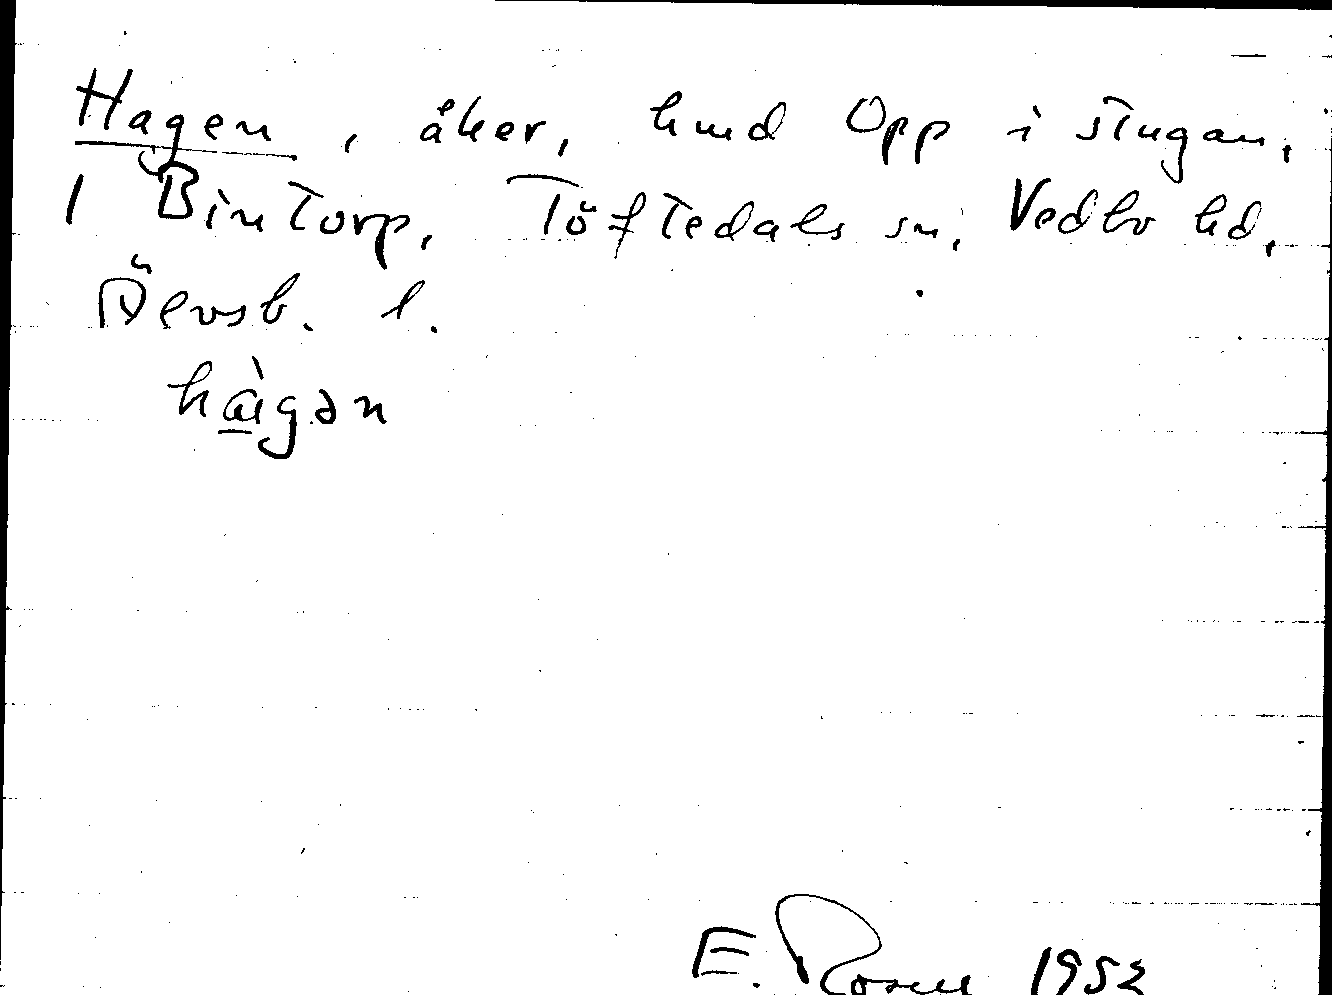 Hagen, åker, hmd Opp i stugan,
1 Bintorp, Töftedals sn, Vedbo hd,
Älvsb. l.
hàgən
E. Rosell 1952